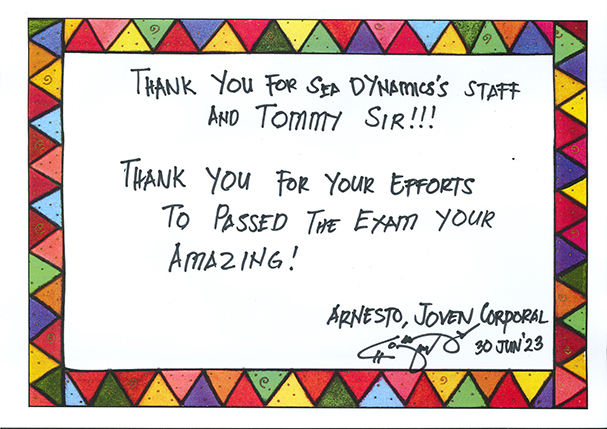 THANK YOU FOR SEA DYNAMICS'S STAFF
AND TOMMY SIR!!!
THANK YOU FOR YOUR EFFORTS
TO PASSED THE EXAM YOUR
AMAZING!
ARNESTO, JOVEN CORPORAL
30 JUN'23